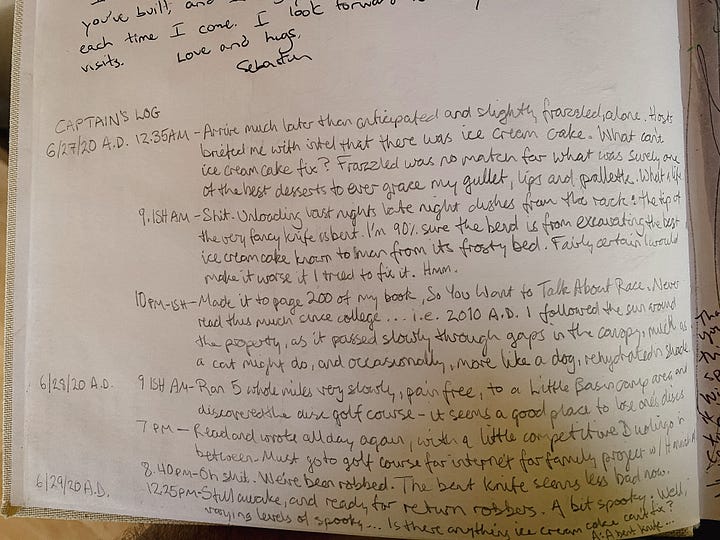 you've built, and I
each time I come. I look forward
visits. Love and hugs,
Sebastian
CAPTAIN'S LOG
6/27/20 A.D. 12:35AM - Arrive much later than anticipated and slightly frazzled, alone. Hosts
briefed me with intel that there was ice cream cake. What can't
ice cream cake fix? Frazzled was no match for what was surely one
of the best desserts to ever grace my gullet, lips and pallette. What a life
9:ISH AM - Shit. Unloading last nights late night dishes from the rack & the tip of
the very fancy knife is bent. I'm 90% sure the bend is from excavating the best
ice cream cake known to man from its frosty bed. Fairly certain I would
make it worse if I tried to fix it. Hmm.
10PM-ISH - Made it to page 200 of my book, So You Want to Talk About Race. Never
read this much since college... i.e. 2010 A.D. I followed the sun around
the property, as it passed slowly through gaps in the canopy, much as
a cat might do, and occasionally, more like a dog, rehydrated in shade.
6/28/20 A.D. 9 ISH AM - Ran 5 whole miles very slowly, pain free, to a Little Basin camp area and
discovered the disc golf course - it seems a good place to lose one's discs
7 PM - Read and wrote all day again, with a little competitive Duolingo in
between. Must go to golf course for internet for family prayer w/
8:40PM - Oh shit. We've been robbed. The bent knife seems less bad now.
6/29/20 A.D. 12:25PM - Still awake, and ready for return robbers. A bit spooky. Well,
varying levels of spooky... Is there anything ice cream cake can't fix?
A: A bent knife...